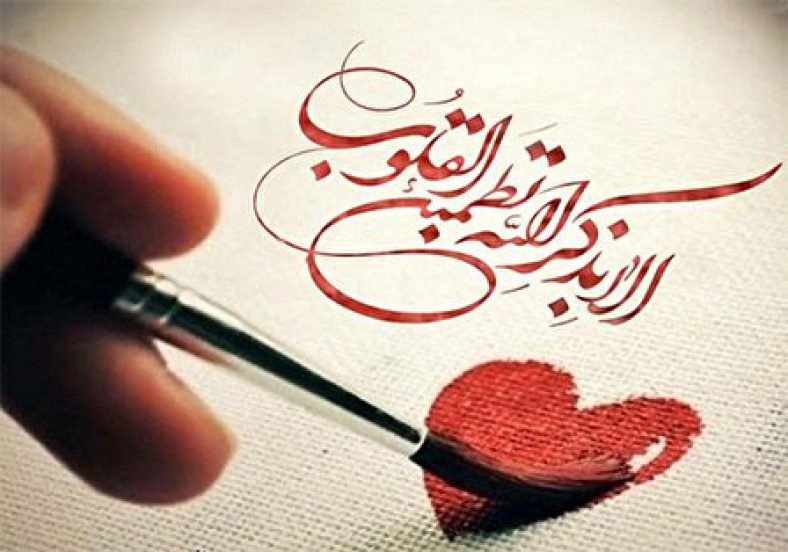 الا بذکر الله تطمئن القُلوب